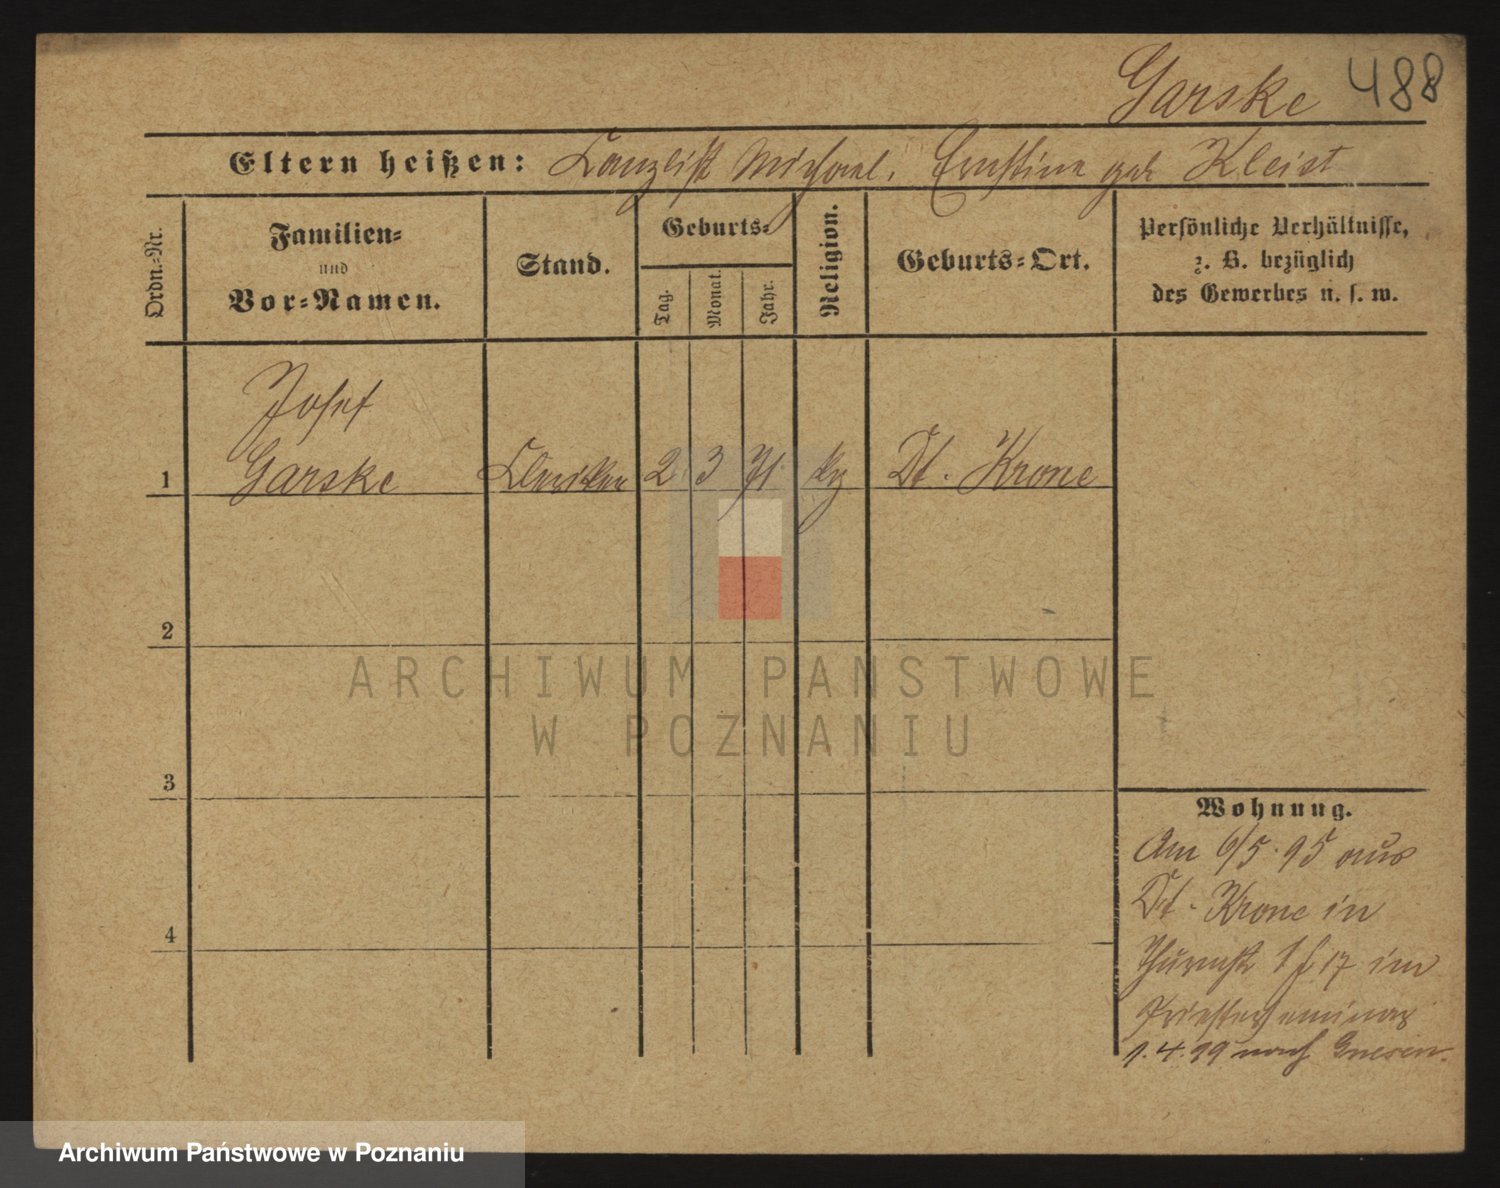 Garske 488
Eltern heißen: Kanzlist Michael, Ernstine geb Kleist
Ordn.-Nr.
Familien-
und
Vor-Namen.
Stand.
Geburts-
Tag.
Monat.
Jahr.
Religion.
Geburts-Ort.
Persönliche Verhältnisse,
z. B. bezüglich
des Gewerbes u. s. w.
Josef
1 Garske Kleriker 2 3 71 Dt. Krone
2
ARCHIWUM PANSTWOWE
W POZNANIU
3
Wohnung.
Am 6/5 95 aus
Dt. Krone in
17 im
Priesterseminar
1.4.99 nach Gnesen.
4
Archiwum Państwowe w Poznaniu